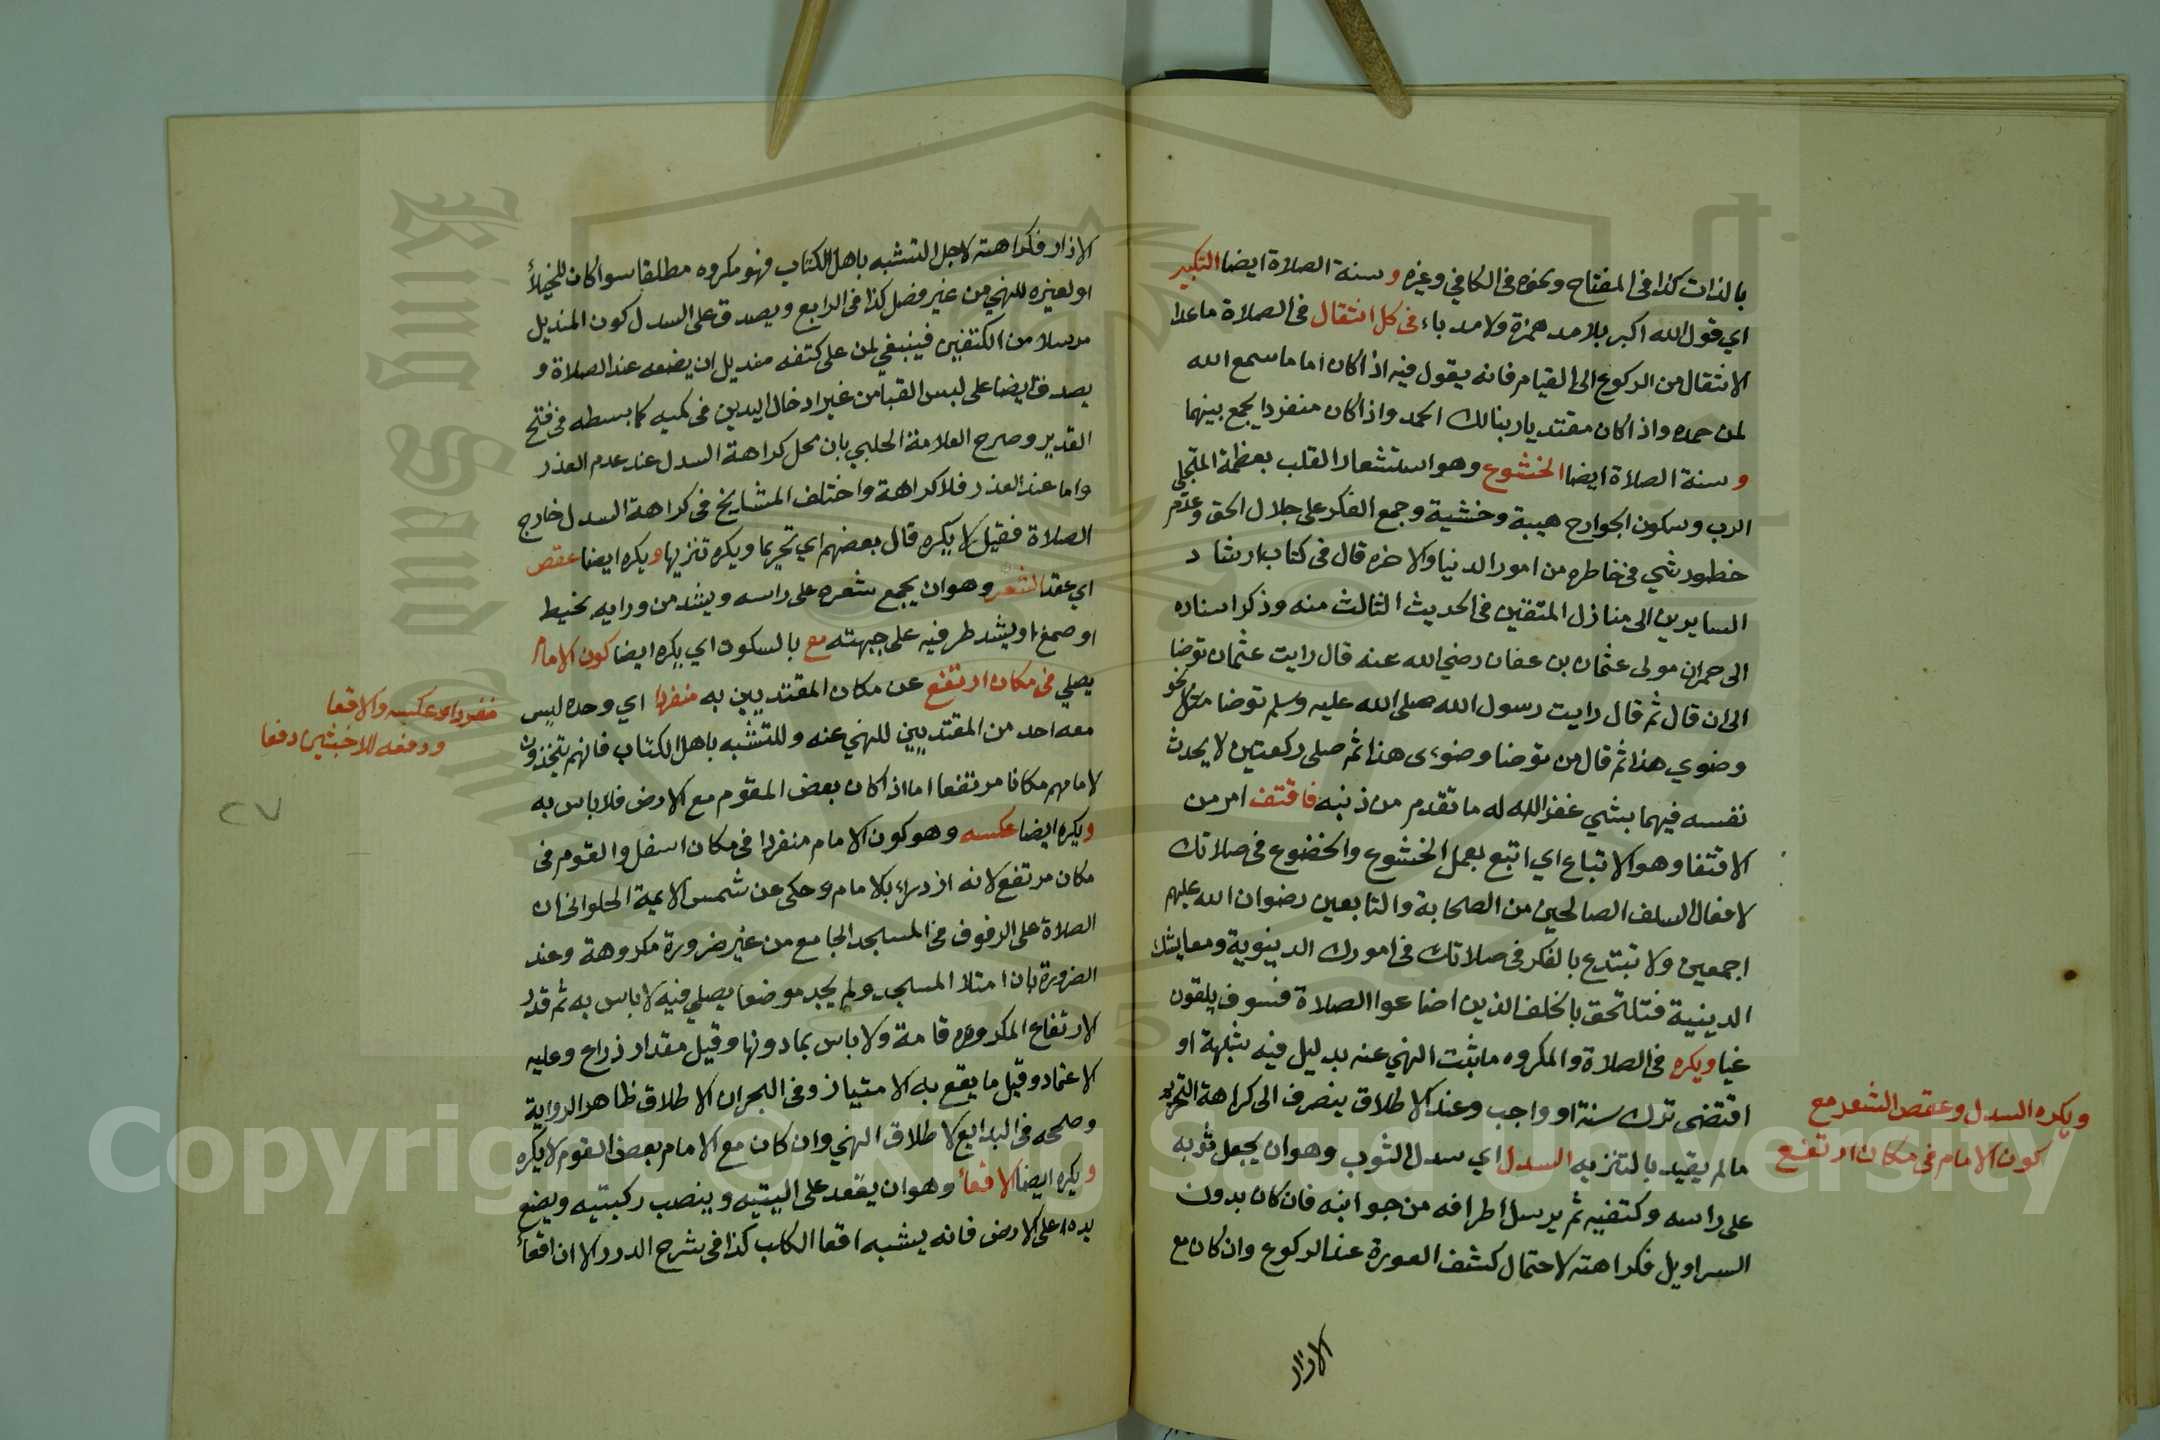 بالذات كذا فى المفتاح ونحوه فى الكافي وغيره وسنة الصلاة ايضا التكبير
اي قول الله اكبر بلا مد همزة ولا مد باء فى كل انتقال فى الصلاة ماعدا
الانتقال من الركوع الى القيام فانه يقول فيه اذا كان اماما سمع الله
لمن حمده واذا كان مقتديا ربنا لك الحمد واذا كان منفردا يجمع بينهما
وسنة الصلاة ايضا الخشوع وهو استشعار القلب بعظمة المتجلي
الرب وسكون الجوارح هيبة وخشية وجمع الفكر على جلال الحق وعدم
خطور شي فى خاطره من امور الدنيا والاخره قال فى كتاب ارشاد
السايرين الى منازل المتقين فى الحديث الثالث منه وذكر اسناده
الى حمران مولى عثمان بن عفان رضي الله عنه قال رايت عثمان توضا
الى ان قال ثم قال رايت رسول الله صلى الله عليه وسلم توضا نحو
وضوي هذا ثم قال من توضا وضوءى هذا ثم صلى ركعتين لا يحدث
نفسه فيهما بشي غفر الله له ما تقدم من ذنبه فاقتف امر من
الاقتفا وهو الاتباع اي اتبع بعمل الخشوع والخضوع فى صلاتك
لافعال السلف الصالحين من الصحابة والتابعين رضوان الله عليهم
اجمعين ولا تبتدع بالفكر فى صلاتك فى امورك الدنيوية ومعايشك
الدينية فتلتحق بالخلف الذين اضاعوا الصلاة فسوف يلقون
غيا ويكره فى الصلاة والمكروه ما ثبت النهي عنه بدليل فيه شبهة او
اقتضى ترك سنة او واجب وعند الاطلاق ينصرف الى كراهة التحريم
مالم يقيد بالتنزيه السدل اي سدل الثوب وهو ان يجعل ثوبه
على راسه وكتفيه ثم يرسل اطرافه من جوانبه فان كان بدون
السراويل فكراهته لاحتمال كشف العورة عند الركوع وان كان مع
الازار
ويكره السدل وعقص الشعر مع
كون الامام فى مكان ارتفع
الازار فكراهته لاجل التشبه باهل الكتاب فهو مكروه مطلقا سوا كان للخيلاء
او لغيره للنهي من غير فصل كذا فى الرابع ويصدق على السدل كون المنديل
مرسلا من الكتفين فينبغي لمن على كتفه منديل ان يضعه عند الصلاة و
يصدق ايضا على لبس القبا من غير ادخال اليدين فى كميه كما بسطه فى فتح
القدير وصرح العلامة الحلبي بان محل كراهة السدل عند عدم العذر
واما عند العذر فلا كراهة واختلف المشايخ فى كراهة السدل خارج
الصلاة فقيل لا يكره قال بعضهم اي تحريما ويكره تنزيها ويكره ايضا عقص
اي عقد الشعر وهو ان يجمع شعره على راسه ويشد من ورايه بخيط
او صمغ او يشد طرفيه على جبهته مع بالسكون اي يكره ايضا كون الامام
يصلي فى مكان ارتفع عن مكان المقتديين به منفردا اي وحده ليس
معه احد من المقتديين للنهي عنه وللتشبه باهل الكتاب فانهم يتخذون
لامامهم مكانا مرتفعا اما اذا كان بعض المقوم مع الارض فلا باس به
ويكره ايضا عكسه وهو كون الامام منفردا فى مكان اسفل والقوم فى
مكان مرتفع لانه ازدراء بالامام وحكى عن شمس الايمة الحلوانى ان
الصلاة على الرفوف فى المسجد الجامع من غير ضرورة مكروهة وعند
الضرورة بان امتلا المسجد ولم يجد موضعا يصلي فيه لا باس به ثم قدر
الارتفاع المكروه قامة ولا باس بما دونها وقيل مقدار ذراع وعليه
الاعتماد وقيل ما يقع به الامتياز وفى البحران الاطلاق ظاهر الرواية
وصححه فى البدايع لاطلاق النهي وان كان مع الامام بعض القوم لا يكره
ويكره ايضا الاقعاء وهو ان يقعد على اليتيه وينصب ركبتيه ويضع
يده على الارض فانه يشبه اقعا الكلب كذا فى شرح الدرر الا ان اقعاء
منفردا وعكسه والاقعا
ودفعه للاخبثين دفعا
٢٧
King Saud University
1957
Copyright © King Saud University